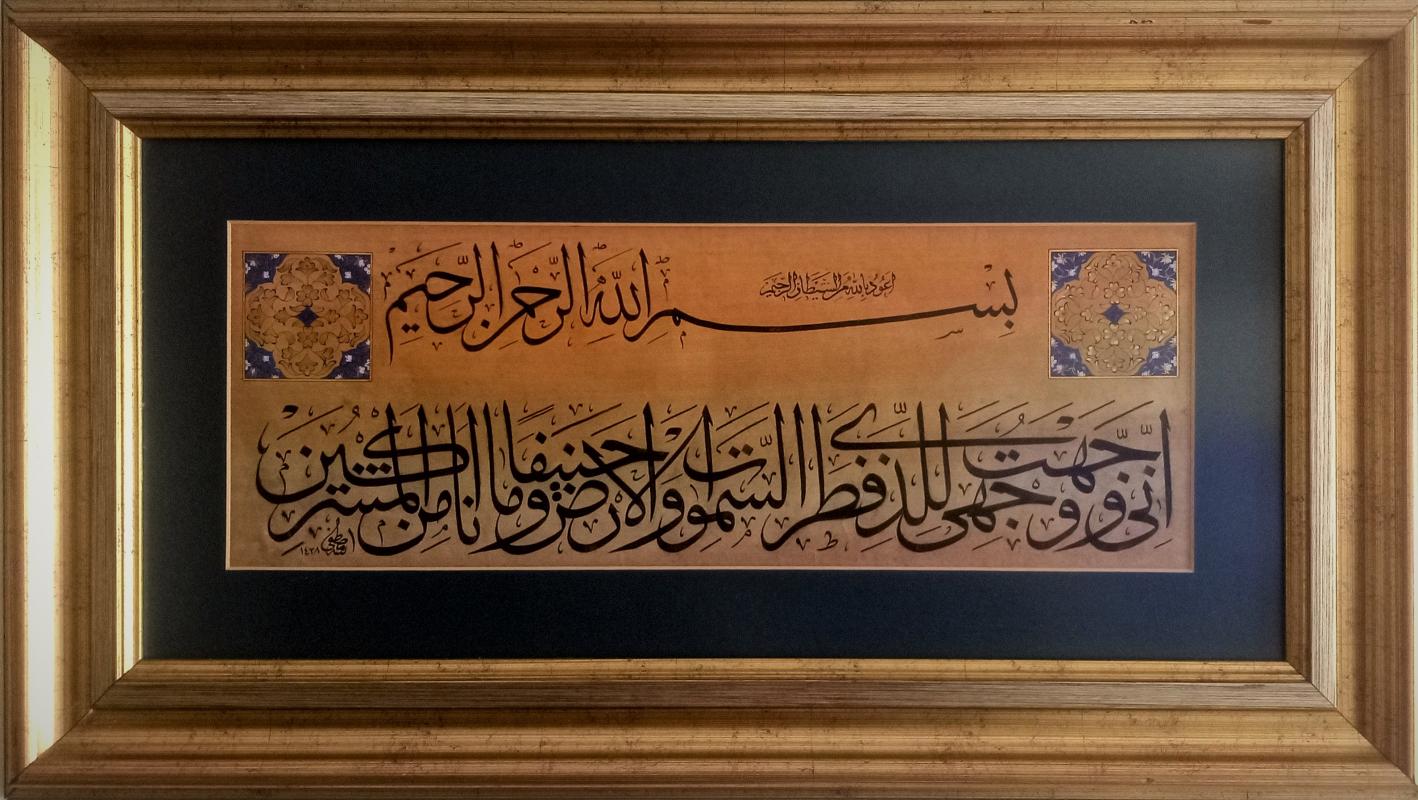 اعوذ بالله من الشيطان الرجيم
بسم الله الرحمن الرحيم
انى وجهت وجهى للذى فطر السموات والارض حنيفا وما انا من المشركين
١٤٣٨